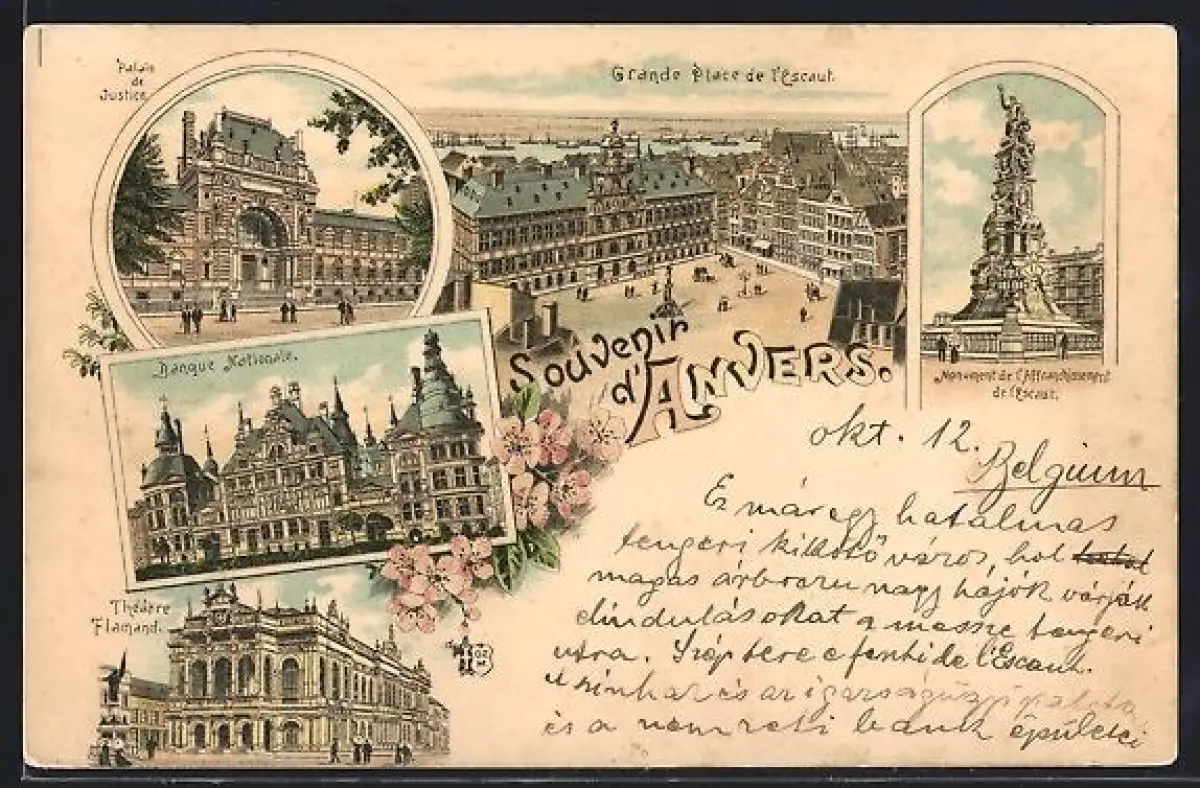 Palais
de
Justice.
Grande Place de l'Escaut.
Banque Nationale.
Souvenir
d'ANVERS.
Monument de l'Affranchissement
de l'Escaut.
Théâtre
Flamand.
okt. 12.
Belgium
Ez már egy hatalmas
tengeri kikötő város, hol
magas árbocu nagy hájók várják
elindulásokat a messze tengeri
utra. Szép tere a fenti de l'Escaut.
A szinház és az igazságügyi palota
és a nemzeti bank épületei